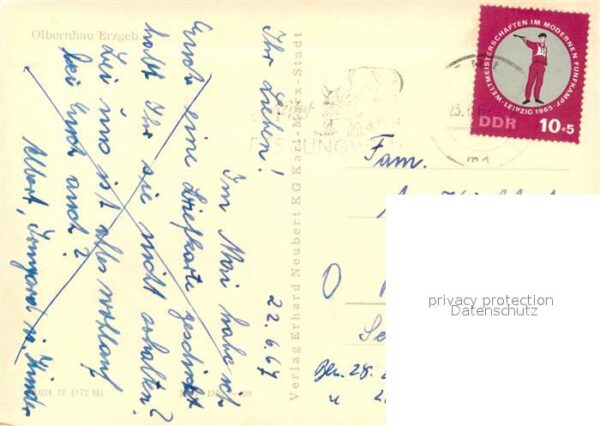 Olbernhau Erzgeb
22.6.67
Ihr Lieben!
Im Mai habe ich
Euch eine Briefkarte geschickt
habt Ihr sie nicht erhalten?
Bei uns ist alles wohlauf
bei Euch auch?
Albert, Irmgard u. Kinder
Verlag Erhard Neubert KG Karl-Marx-Stadt
WELTMEISTERSCHAFTEN IM MODERNEN FÜNFKAMPF
LEIPZIG 1965
DDR 10+5
Fam.
O
u
N (172 B)
privacy protection
Datenschutz